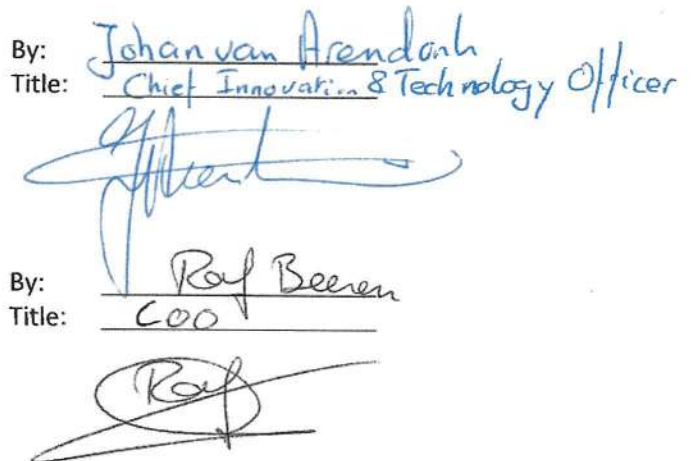 By: Johan van Arendonk
Title: Chief Innovation & Technology Officer
By: Raf Beeren
Title: COO
Raf